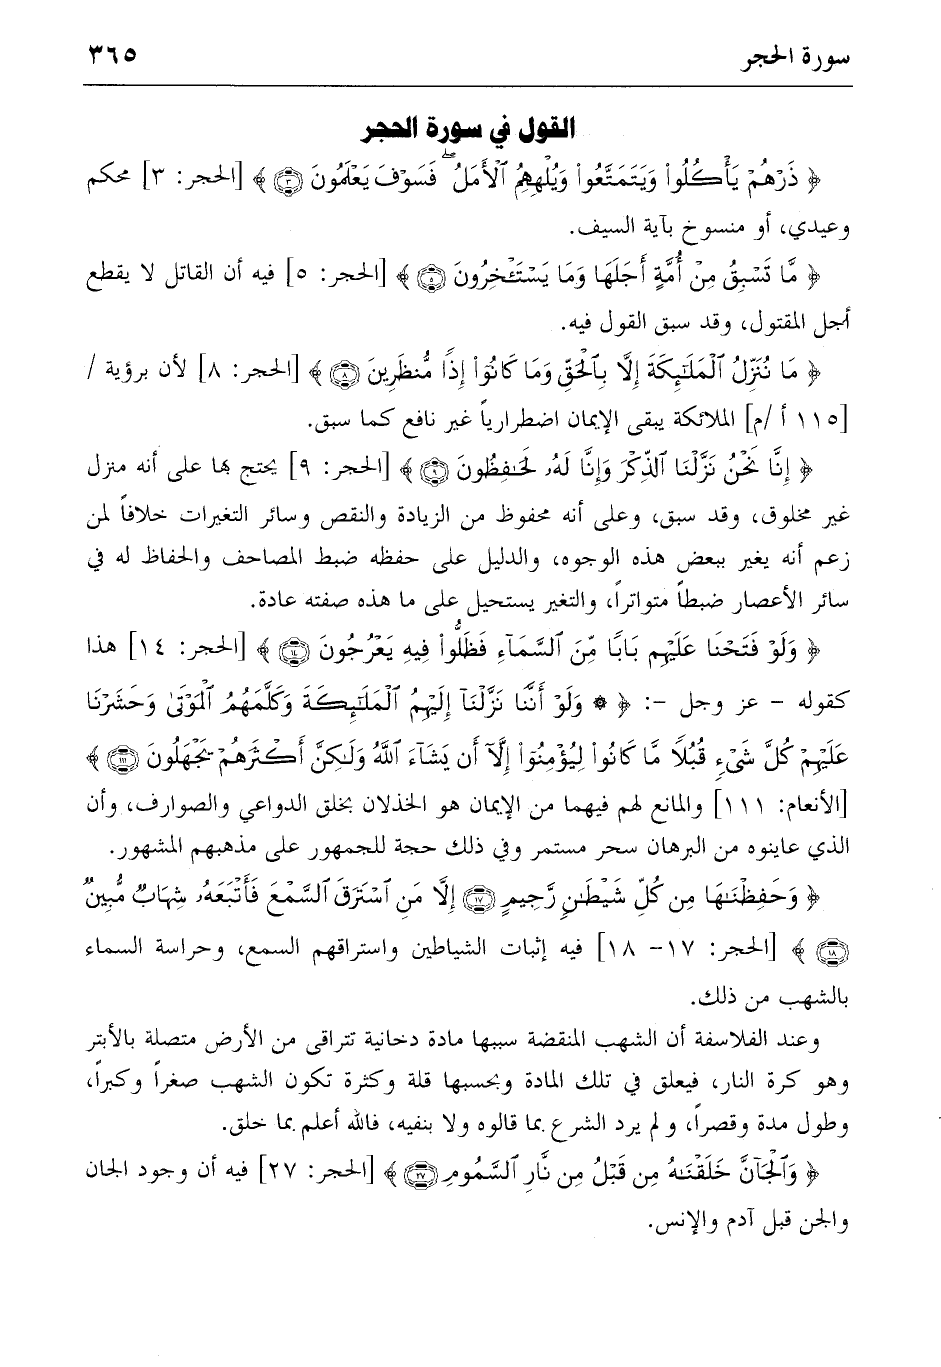 سورة الحجر ٣٦٥
القول في سورة الحجر
﴿ ذَرْهُمْ يَأْكُلُوا۟ وَيَتَمَتَّعُوا۟ وَيُلْهِهِمُ ٱلْأَمَلُ ۖ فَسَوْفَ يَعْلَمُونَ ٣ ﴾ [الحجر: ٣] محكم
وعيدي، أو منسوخ بآية السيف.
﴿ مَّا تَسْبِقُ مِنْ أُمَّةٍ أَجَلَهَا وَمَا يَسْتَـْٔخِرُونَ ٥ ﴾ [الحجر: ٥] فيه أن القاتل لا يقطع
أجل المقتول، وقد سبق القول فيه.
﴿ مَا نُنَزِّلُ ٱلْمَلَـٰٓئِكَةَ إِلَّا بِٱلْحَقِّ وَمَا كَانُوٓا۟ إِذًا مُّنظَرِينَ ٨ ﴾ [الحجر: ٨] لأن برؤية /
[١١٥ أ /م] الملائكة يبقى الإيمان اضطرارياً غير نافع كما سبق.
﴿ إِنَّا نَحْنُ نَزَّلْنَا ٱلذِّكْرَ وَإِنَّا لَهُۥ لَحَـٰفِظُونَ ٩ ﴾ [الحجر: ٩] يحتج بها على أنه منزل
غير مخلوق، وقد سبق، وعلى أنه محفوظ من الزيادة والنقص وسائر التغيرات خلافاً لمن
زعم أنه يغير ببعض هذه الوجوه، والدليل على حفظه ضبط المصاحف والحفاظ له في
سائر الأعصار ضبطاً متواتراً، والتغير يستحيل على ما هذه صفته عادة.
﴿ وَلَوْ فَتَحْنَا عَلَيْهِم بَابًا مِّنَ ٱلسَّمَآءِ فَظَلُّوا۟ فِيهِ يَعْرُجُونَ ١٤ ﴾ [الحجر: ١٤] هذا
كقوله - عز وجل -: ﴿ ۞ وَلَوْ أَنَّنَا نَزَّلْنَآ إِلَيْهِمُ ٱلْمَلَـٰٓئِكَةَ وَكَلَّمَهُمُ ٱلْمَوْتَىٰ وَحَشَرْنَا
عَلَيْهِمْ كُلَّ شَىْءٍ قُبُلًا مَّا كَانُوا۟ لِيُؤْمِنُوٓا۟ إِلَّآ أَن يَشَآءَ ٱللَّهُ وَلَـٰكِنَّ أَكْثَرَهُمْ يَجْهَلُونَ ١١١ ﴾
[الأنعام: ١١١] والمانع لهم فيهما من الإيمان هو الخذلان بخلق الدواعي والصوارف، وأن
الذي عاينوه من البرهان سحر مستمر وفي ذلك حجة للجمهور على مذهبهم المشهور.
﴿ وَحَفِظْنَـٰهَا مِن كُلِّ شَيْطَـٰنٍ رَّجِيمٍ ١٧ إِلَّا مَنِ ٱسْتَرَقَ ٱلسَّمْعَ فَأَتْبَعَهُۥ شِهَابٌ مُّبِينٌ
١٨ ﴾ [الحجر: ١٧- ١٨] فيه إثبات الشياطين واستراقهم السمع، وحراسة السماء
بالشهب من ذلك.
وعند الفلاسفة أن الشهب المنقضة سببها مادة دخانية تتراقى من الأرض متصلة بالأبتر
وهو كرة النار، فيعلق في تلك المادة وبحسبها قلة وكثرة تكون الشهب صغراً وكبراً،
وطول مدة وقصراً، و لم يرد الشرع بما قالوه ولا بنفيه، فالله أعلم بما خلق.
﴿ وَٱلْجَآنَّ خَلَقْنَـٰهُ مِن قَبْلُ مِن نَّارِ ٱلسَّمُومِ ٢٧ ﴾ [الحجر: ٢٧] فيه أن وجود الجان
والجن قبل آدم والإنس.